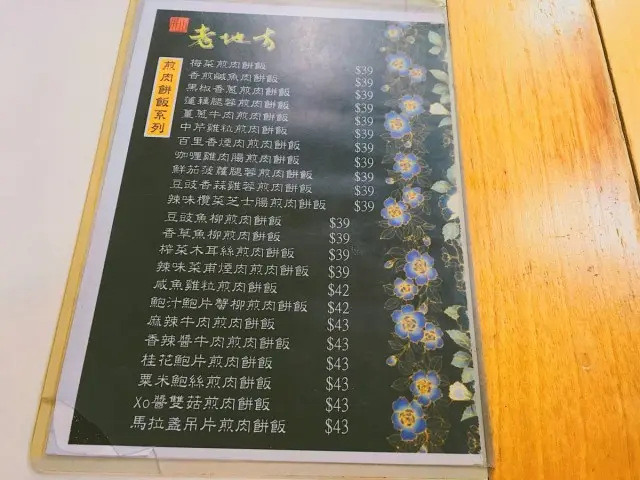 老地方
煎肉餅飯系列
梅菜煎肉餅飯 $39
香煎鹹魚肉餅飯 $39
黑椒香蔥煎肉餅飯 $39
蓮藕腿蓉煎肉餅飯 $39
薑蔥牛肉煎肉餅飯 $39
中芹雞粒煎肉餅飯 $39
百里香煙肉煎肉餅飯 $39
咖喱雞肉腸煎肉餅飯 $39
鮮茄菠蘿腿蓉煎肉餅飯 $39
豆豉香蒜雞蓉煎肉餅飯 $39
辣味欖菜芝士腸煎肉餅飯 $39
豆豉魚柳煎肉餅飯 $39
香草魚柳煎肉餅飯 $39
榨菜木耳絲煎肉餅飯 $39
辣味菜甫煙肉煎肉餅飯 $39
咸魚雞粒煎肉餅飯 $42
鮑汁鮑片蟹柳煎肉餅飯 $42
麻辣牛肉煎肉餅飯 $43
香辣醬牛肉煎肉餅飯 $43
桂花鮑片煎肉餅飯 $43
粟米鮑絲煎肉餅飯 $43
Xo醬雙菇煎肉餅飯 $43
馬拉盞吊片煎肉餅飯 $43